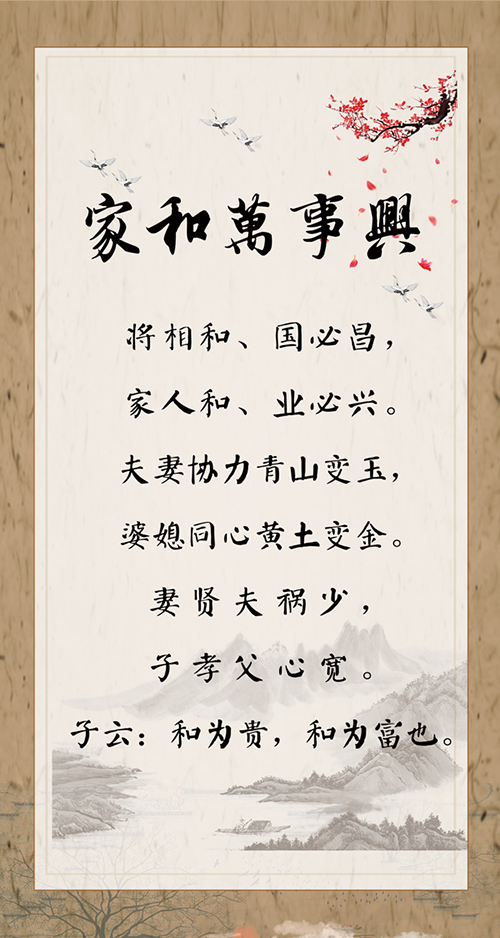 家和萬事興
将相和、国必昌，
家人和、业必兴。
夫妻协力青山变玉，
婆媳同心黄土变金。
妻贤夫祸少，
子孝父心宽。
子云：和为贵，和为富也。